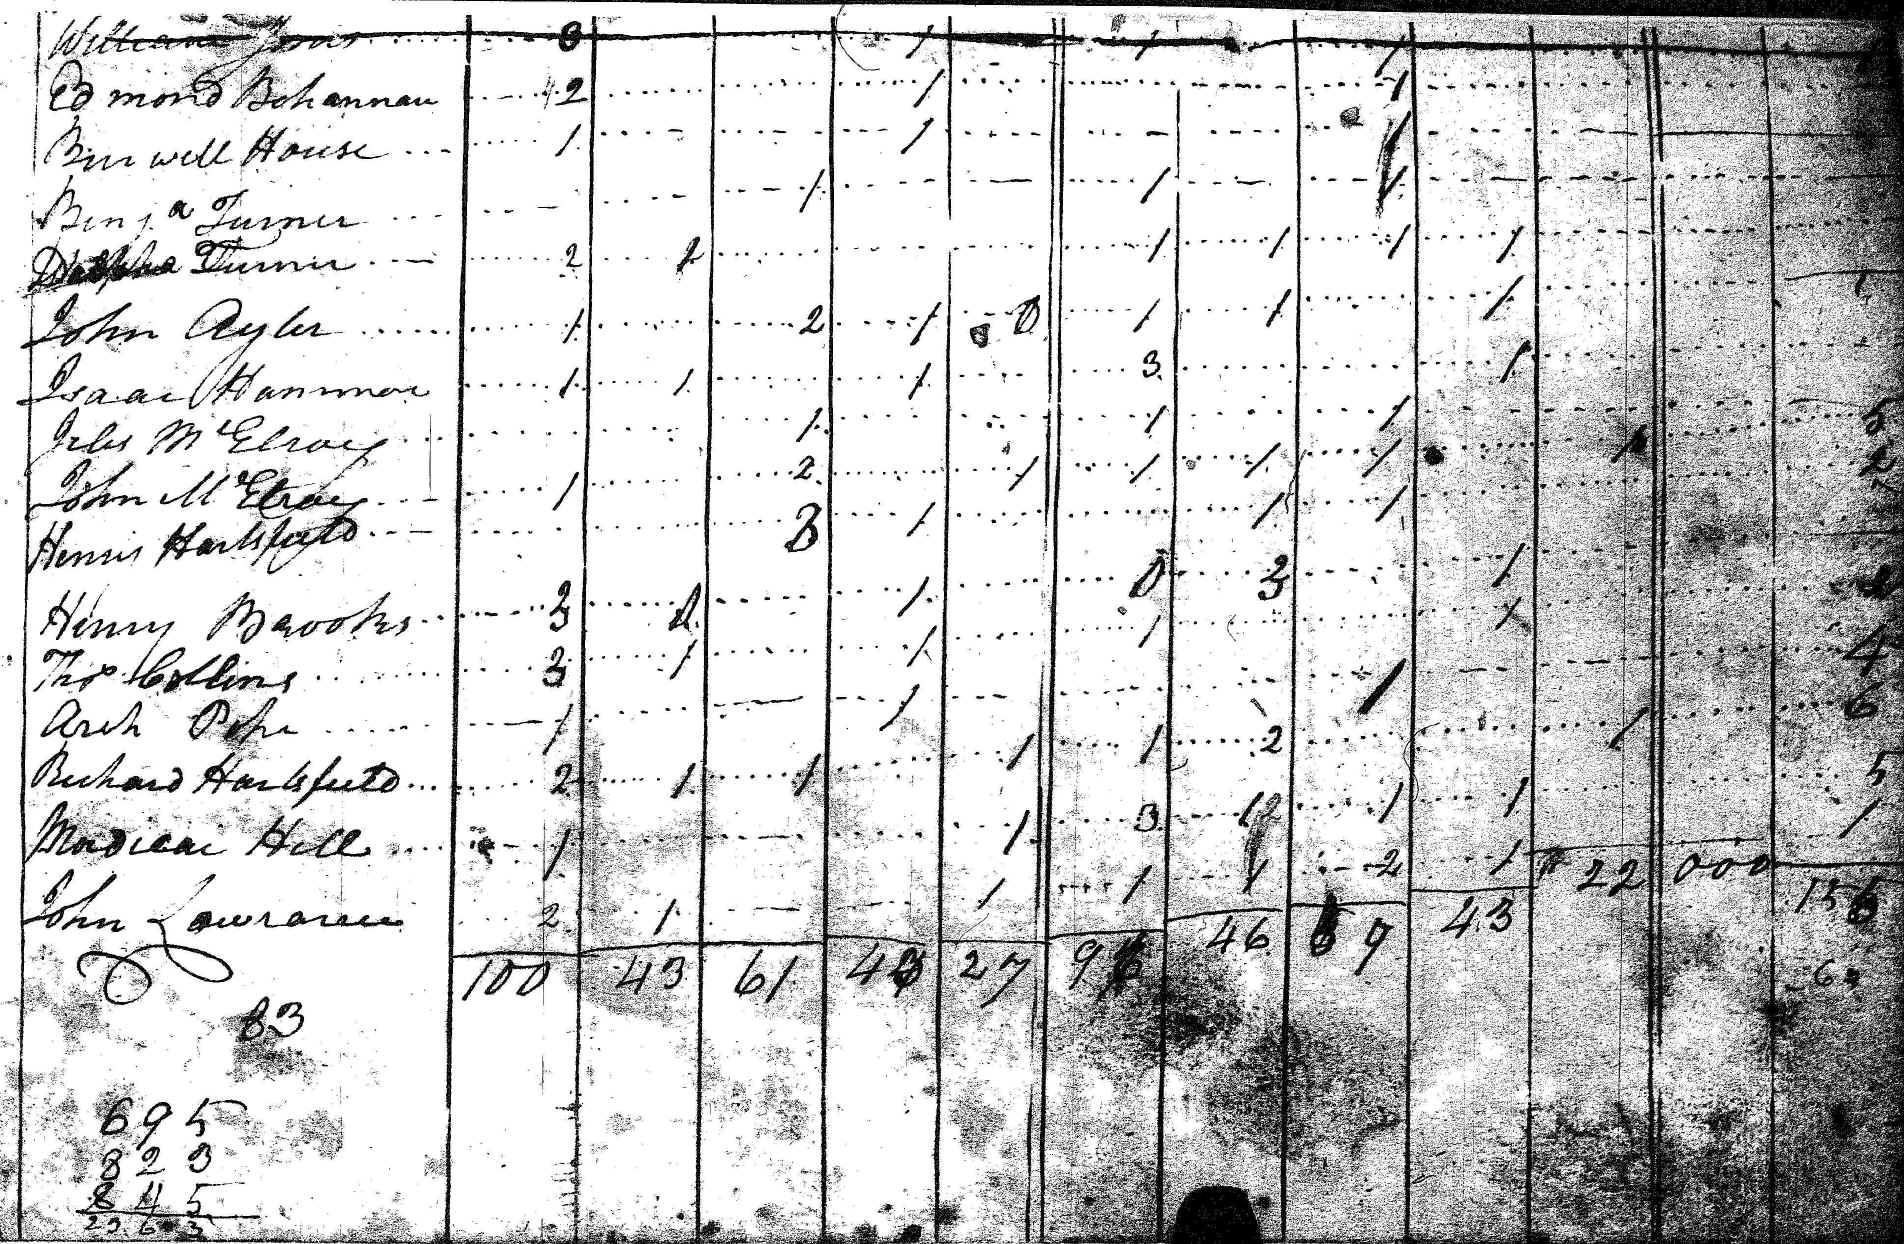 William Jones 3 1 1 1
Edmond Bohannan 2 1 1
Burwell House 1 1 1
Benja Turner 1 1 1
Turner 2 2 1 1 1 1
John Ayler 1 2 1 0 1 1 1
Isaac Hammon 1 1 1 3 1
Jiles McElroy 1 1 1 5
John McElroy 1 2 1 1 1 1 1 2
Henry Hartsfield 3 1 1 1
Henry Brooks 3 1 0 3 1
Thos Collins 3 1 1 1 1 4
Arch Pope 1 1 1 6
Richard Hartsfield 2 1 1 1 1 2 1 5
Mordicai Hill 1 1 3 12 1 1 1
John Lawrance 2 1 1 1 1 2 1
100 43 61 27 46 9 43 22 000
83
695
823
845
2363